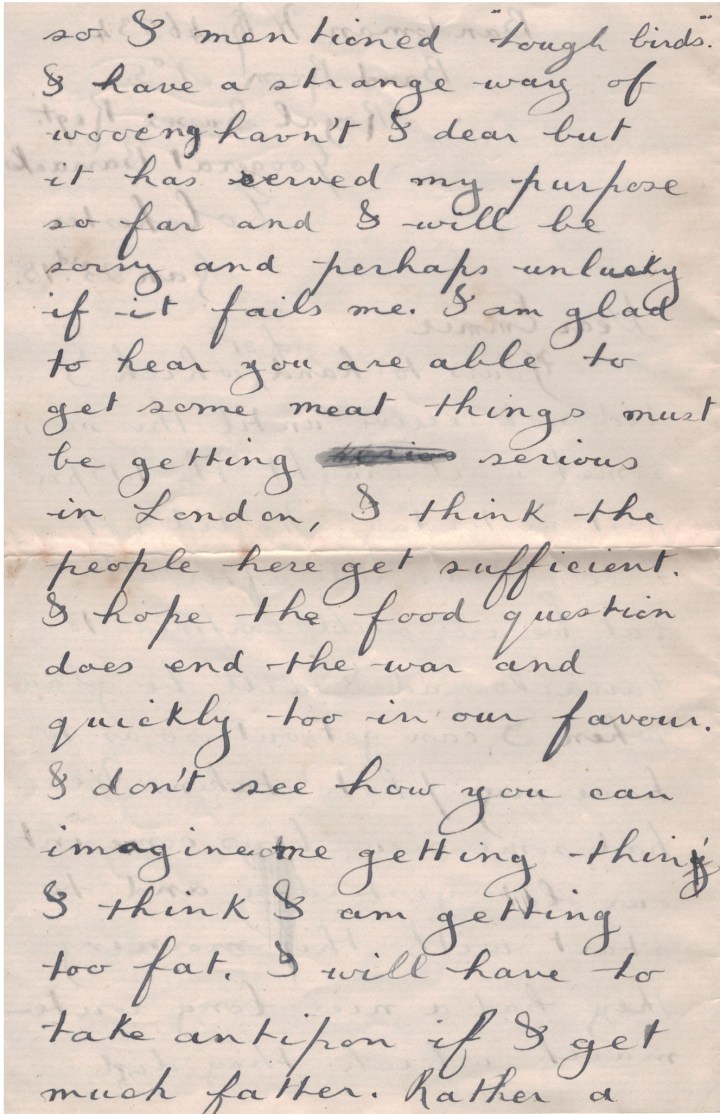 so I mentioned "tough birds".
I have a strange way of
wooing havn't I dear but
it has served my purpose
so far and I will be
sorry and perhaps unlucky
if it fails me. I am glad
to hear you are able to
get some meat things must
be getting serious
in London, I think the
people here get sufficient.
I hope the food question
does end the war and
quickly too in our favour.
I don't see how you can
imagine me getting thin
I think I am getting
too fat. I will have to
take antipon if I get
much fatter. Rather a